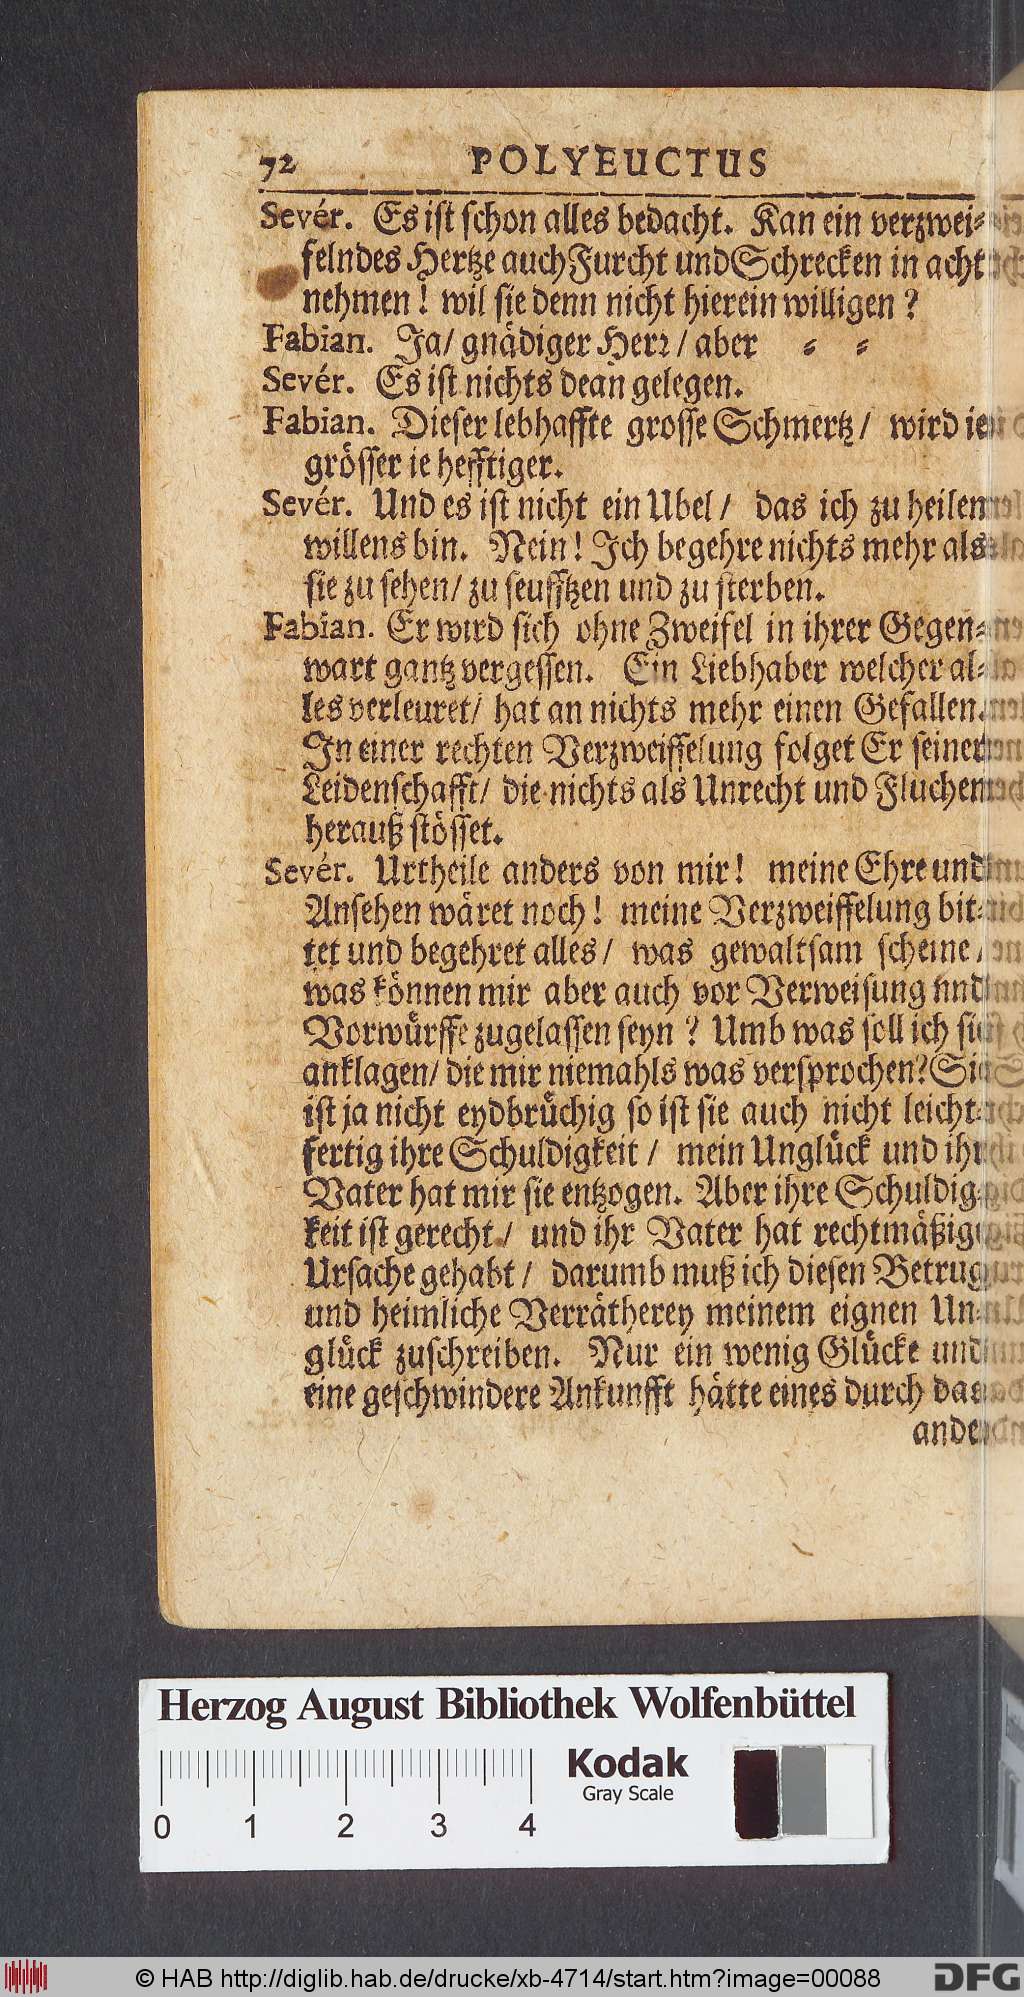 72 POLYEUCTUS
Sevér. Es ist schon alles bedacht. Kan ein verzwei-
felndes Hertze auch Furcht und Schrecken in acht
nehmen! wil sie denn nicht hierein willigen?
Fabian. Ja/ gnädiger Herr/ aber - -
Sevér. Es ist nichts dean gelegen.
Fabian. Dieser lebhaffte grosse Schmertz/ wird ie
grösser ie hefftiger.
Sevér. Und es ist nicht ein Ubel/ das ich zu heilen
willens bin. Nein! Ich begehre nichts mehr als
sie zu sehen/ zu seufftzen und zu sterben.
Fabian. Er wird sich ohne Zweifel in ihrer Gegen-
wart gantz vergessen. Ein Liebhaber welcher al-
les verleuret/ hat an nichts mehr einen Gefallen.
In einer rechten Verzweiffelung folget Er seiner
Leidenschafft/ die nichts als Unrecht und Fluchen
herauß stösset.
Sevér. Urtheile anders von mir! meine Ehre und
Ansehen wäret noch! meine Verzweiffelung bit-
tet und begehret alles/ was gewaltsam scheine/
was können mir aber auch vor Verweisung nnd
Vorwürffe zugelassen seyn? Umb was soll ich sie
anklagen/ die mir niemahls was versprochen? Sie
ist ja nicht eydbrüchig so ist sie auch nicht leicht-
fertig ihre Schuldigkeit/ mein Unglück und ihr
Vater hat mir sie entzogen. Aber ihre Schuldig-
keit ist gerecht/ und ihr Vater hat rechtmäßige
Ursache gehabt/ darumb muß ich diesen Betrug
und heimliche Verrätherey meinem eignen Un-
glück zuschreiben. Nur ein wenig Glücke und
eine geschwindere Ankunfft hätte eines durch das
Herzog August Bibliothek Wolfenbüttel
Kodak
Gray Scale
0 1 2 3 4
© HAB http://diglib.hab.de/drucke/xb-4714/start.htm?image=00088
DFG